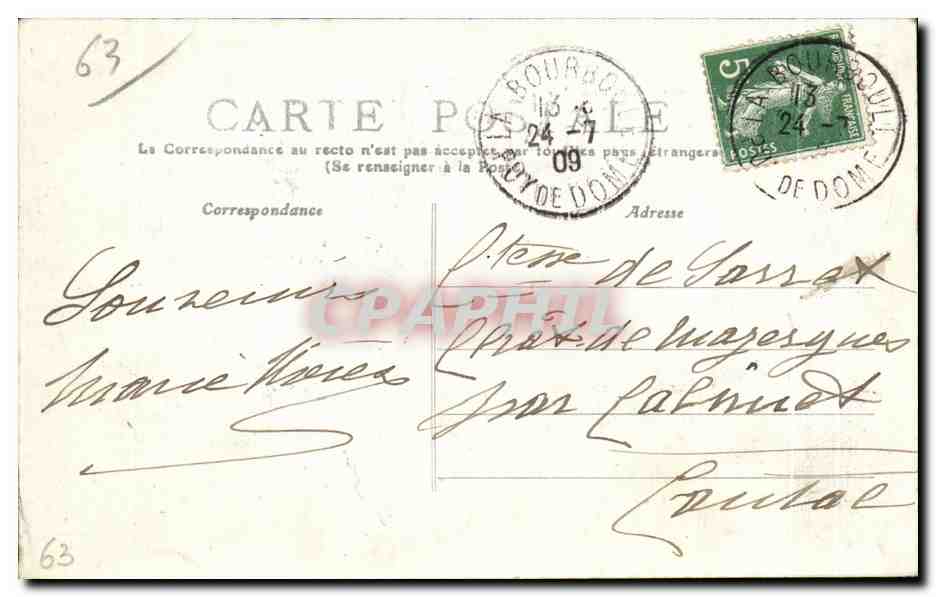 63
CARTE POSTALE
La Correspondance au recto n'est pas acceptée par tous les pays étrangers
(Se renseigner à la Poste)
LA BOURBOULE
13
24 -7
09
PUY DE DOME
5
POSTES
FRANÇAISE
LA BOURBOULE
13
24 -7
DE DOME
Correspondance
Adresse
Souvenirs
Marie
Ctesse de Sarret
Chat de Mazergues
par Calvinet
Cantal
CPAPHIL
63